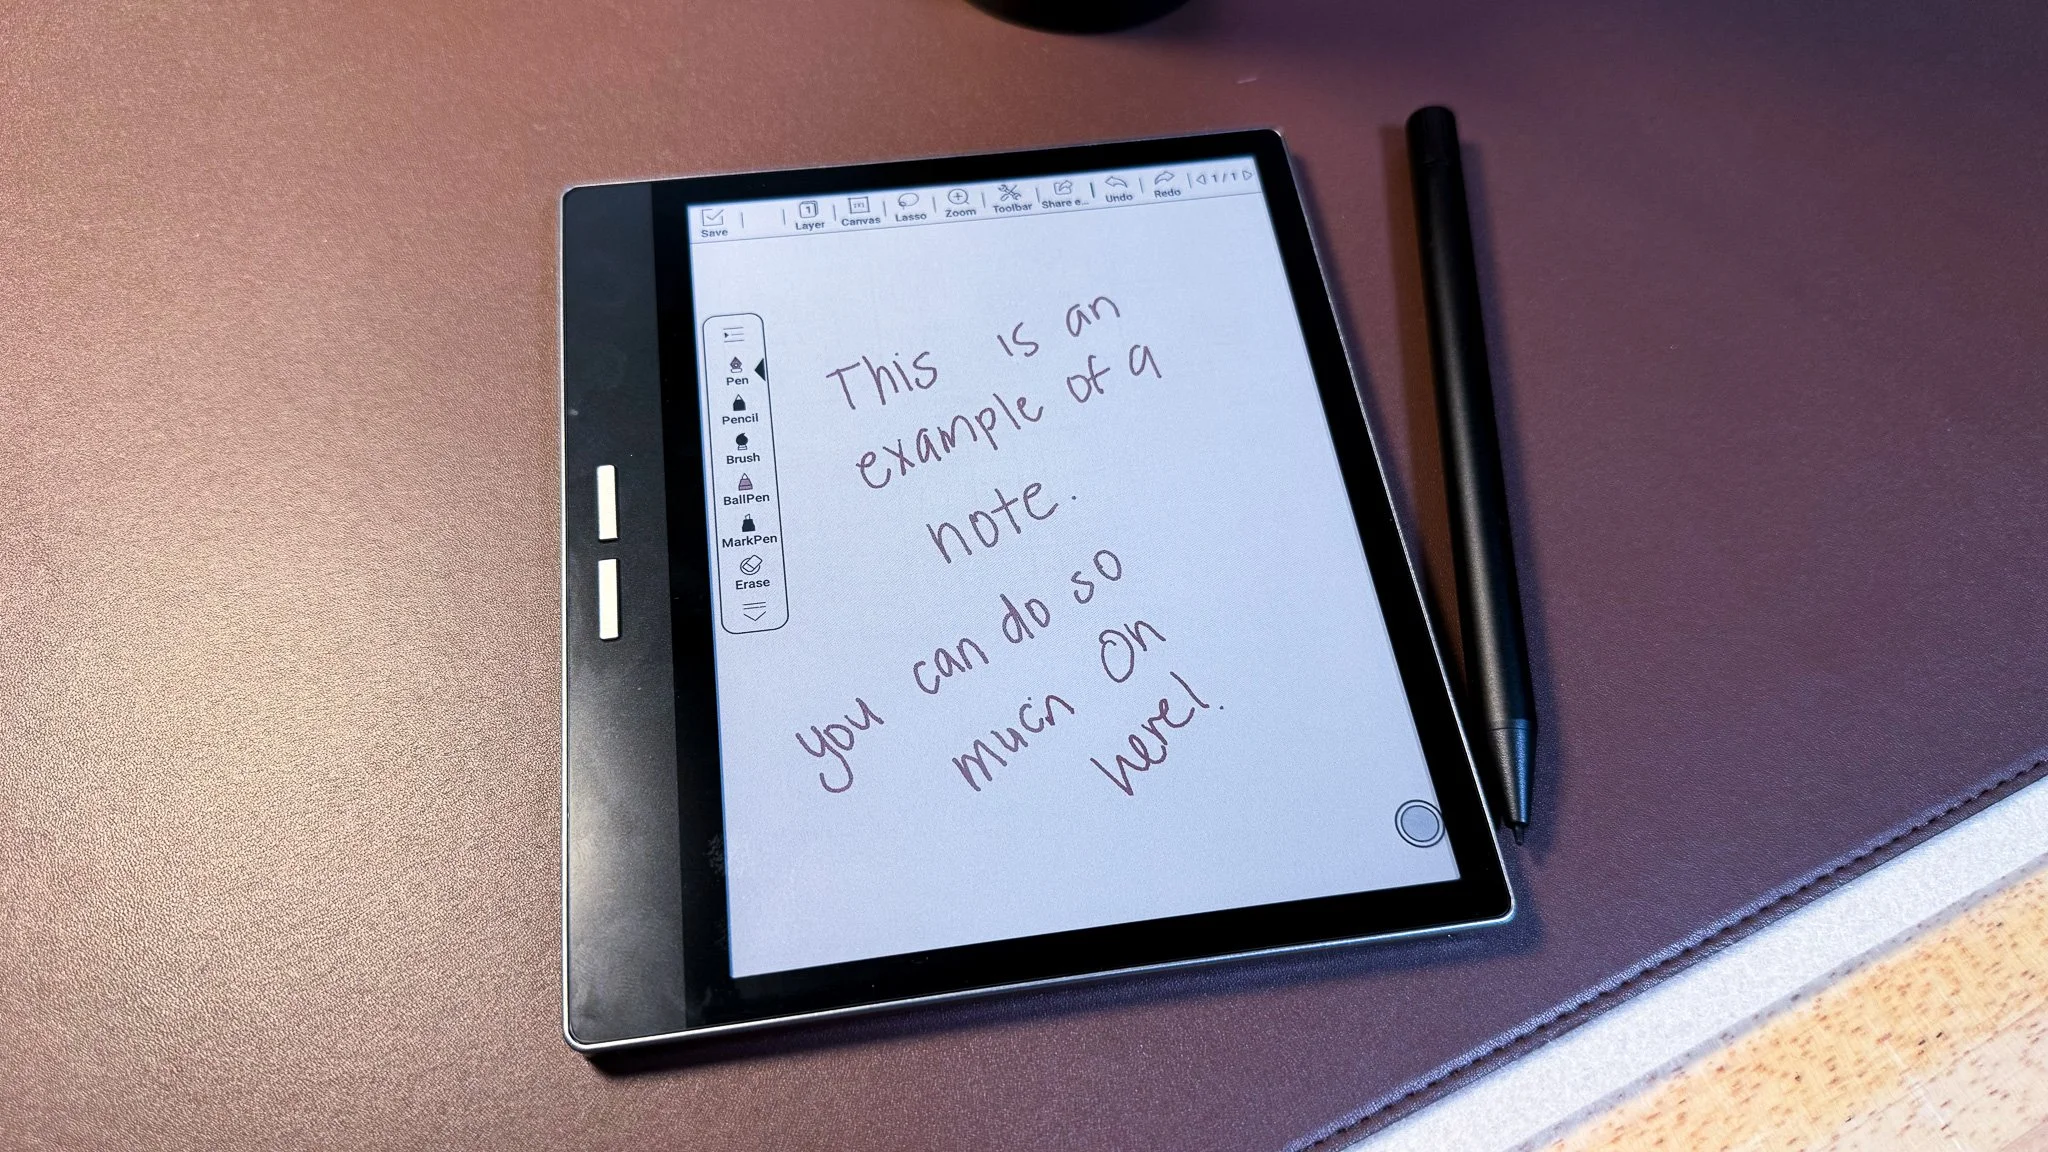 Save
Layer
Canvas
Lasso
Zoom
Toolbar
Share e...
Undo
Redo
1/1
Pen
Pencil
Brush
BallPen
MarkPen
Erase
This is an
example of a
note.
you can do so
much on
here!